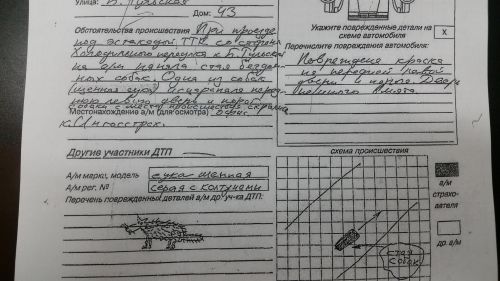 Улица: Б. Тульская
Дом: 43
Обстоятельства происшествия При проезде
под эстакадой ТТК со стороны
Холодильного переулка к Б. Тульской
на нала стая бездом-
ных собак. Одна из собак
(щенная сука) исцарапала перед-
нюю левую дверь и порог.
Собака с места происшествия скрылась
Местонахождение а/м (для осмотра) офис
к. Ингосстрах.
Укажите поврежденные детали на
схеме автомобиля
X
Перечислите повреждения автомобиля:
Повреждения краски
на передней левой
двери и пороге. Дверь
немного мята.
Другие участники ДТП
А/м марки, модель сука щенная
А/м рег. № серая с колтунами
Перечень поврежденных деталей а/м др. уч-ка ДТП:
схема происшествия
а/м
страхо-
вателя
др. а/м
стая
собак